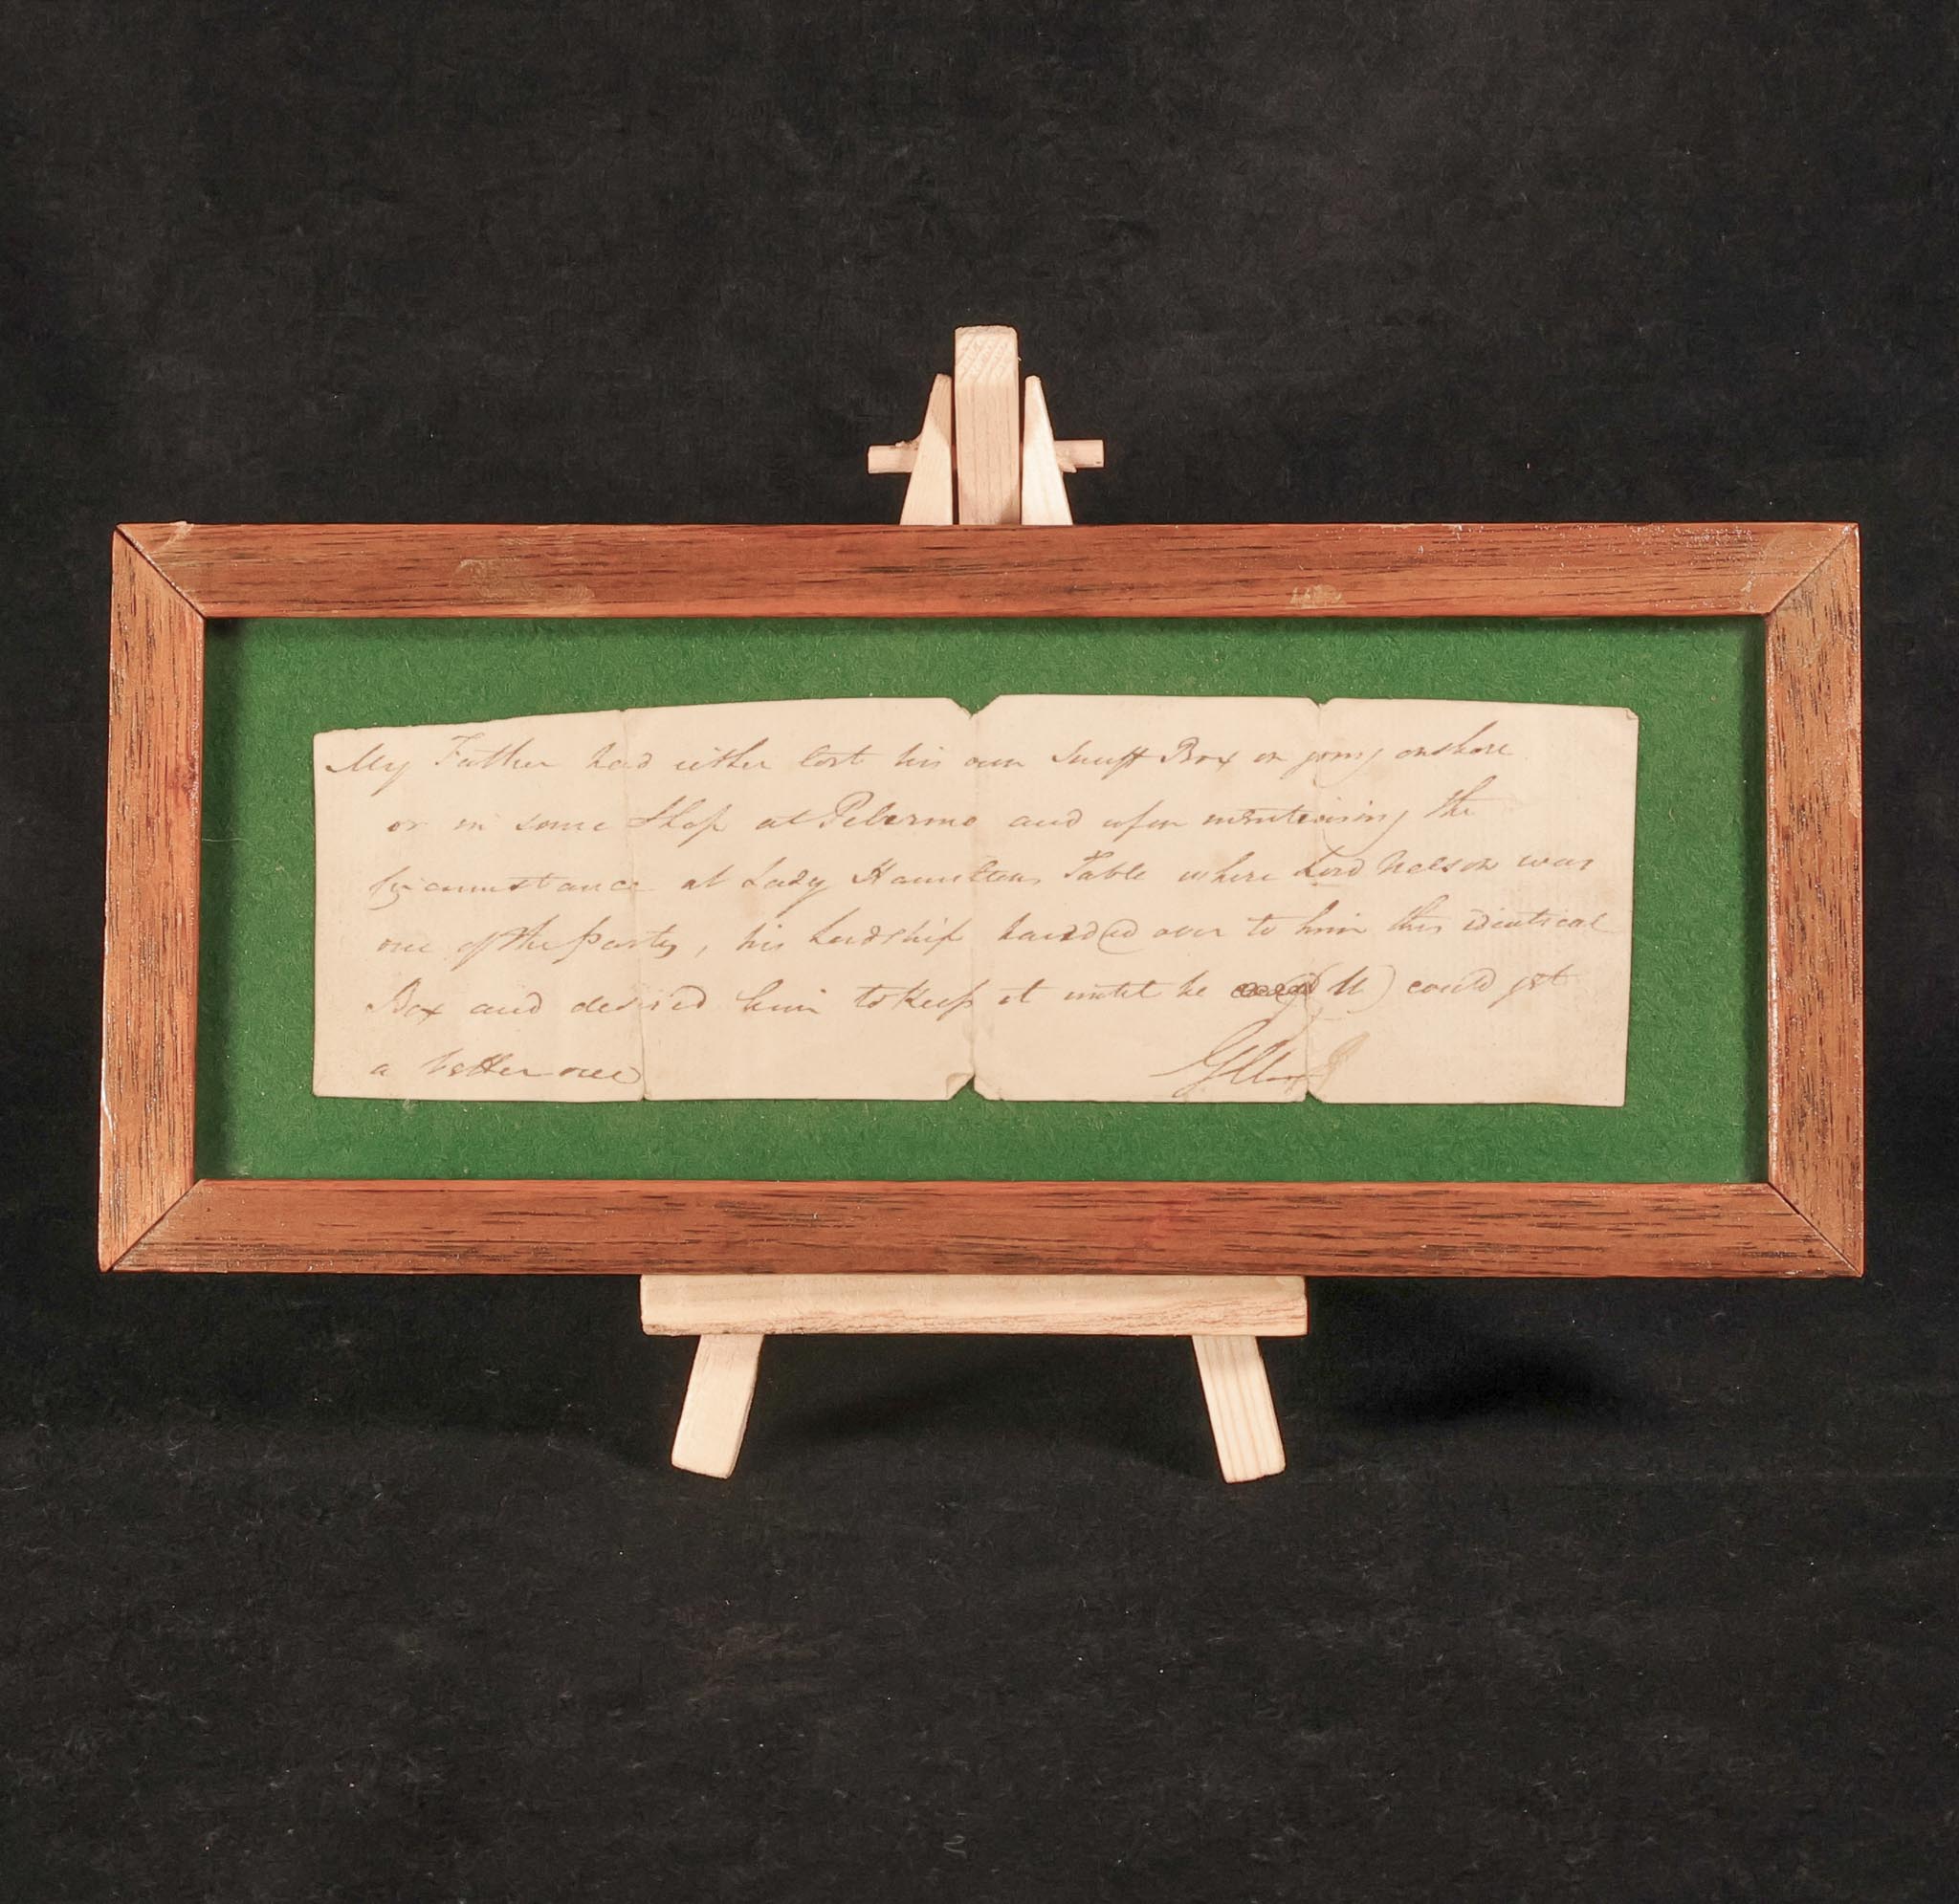 My Father had either lost his own Snuff Box on going onshore
or in some Shop at Palermo and upon mentioning the
circumstance at Lady Hamiltons Table where Lord Nelson was
one of the party, his Lordship handed over to him this identical
Box and desired him to keep it until he ) could get
a better one